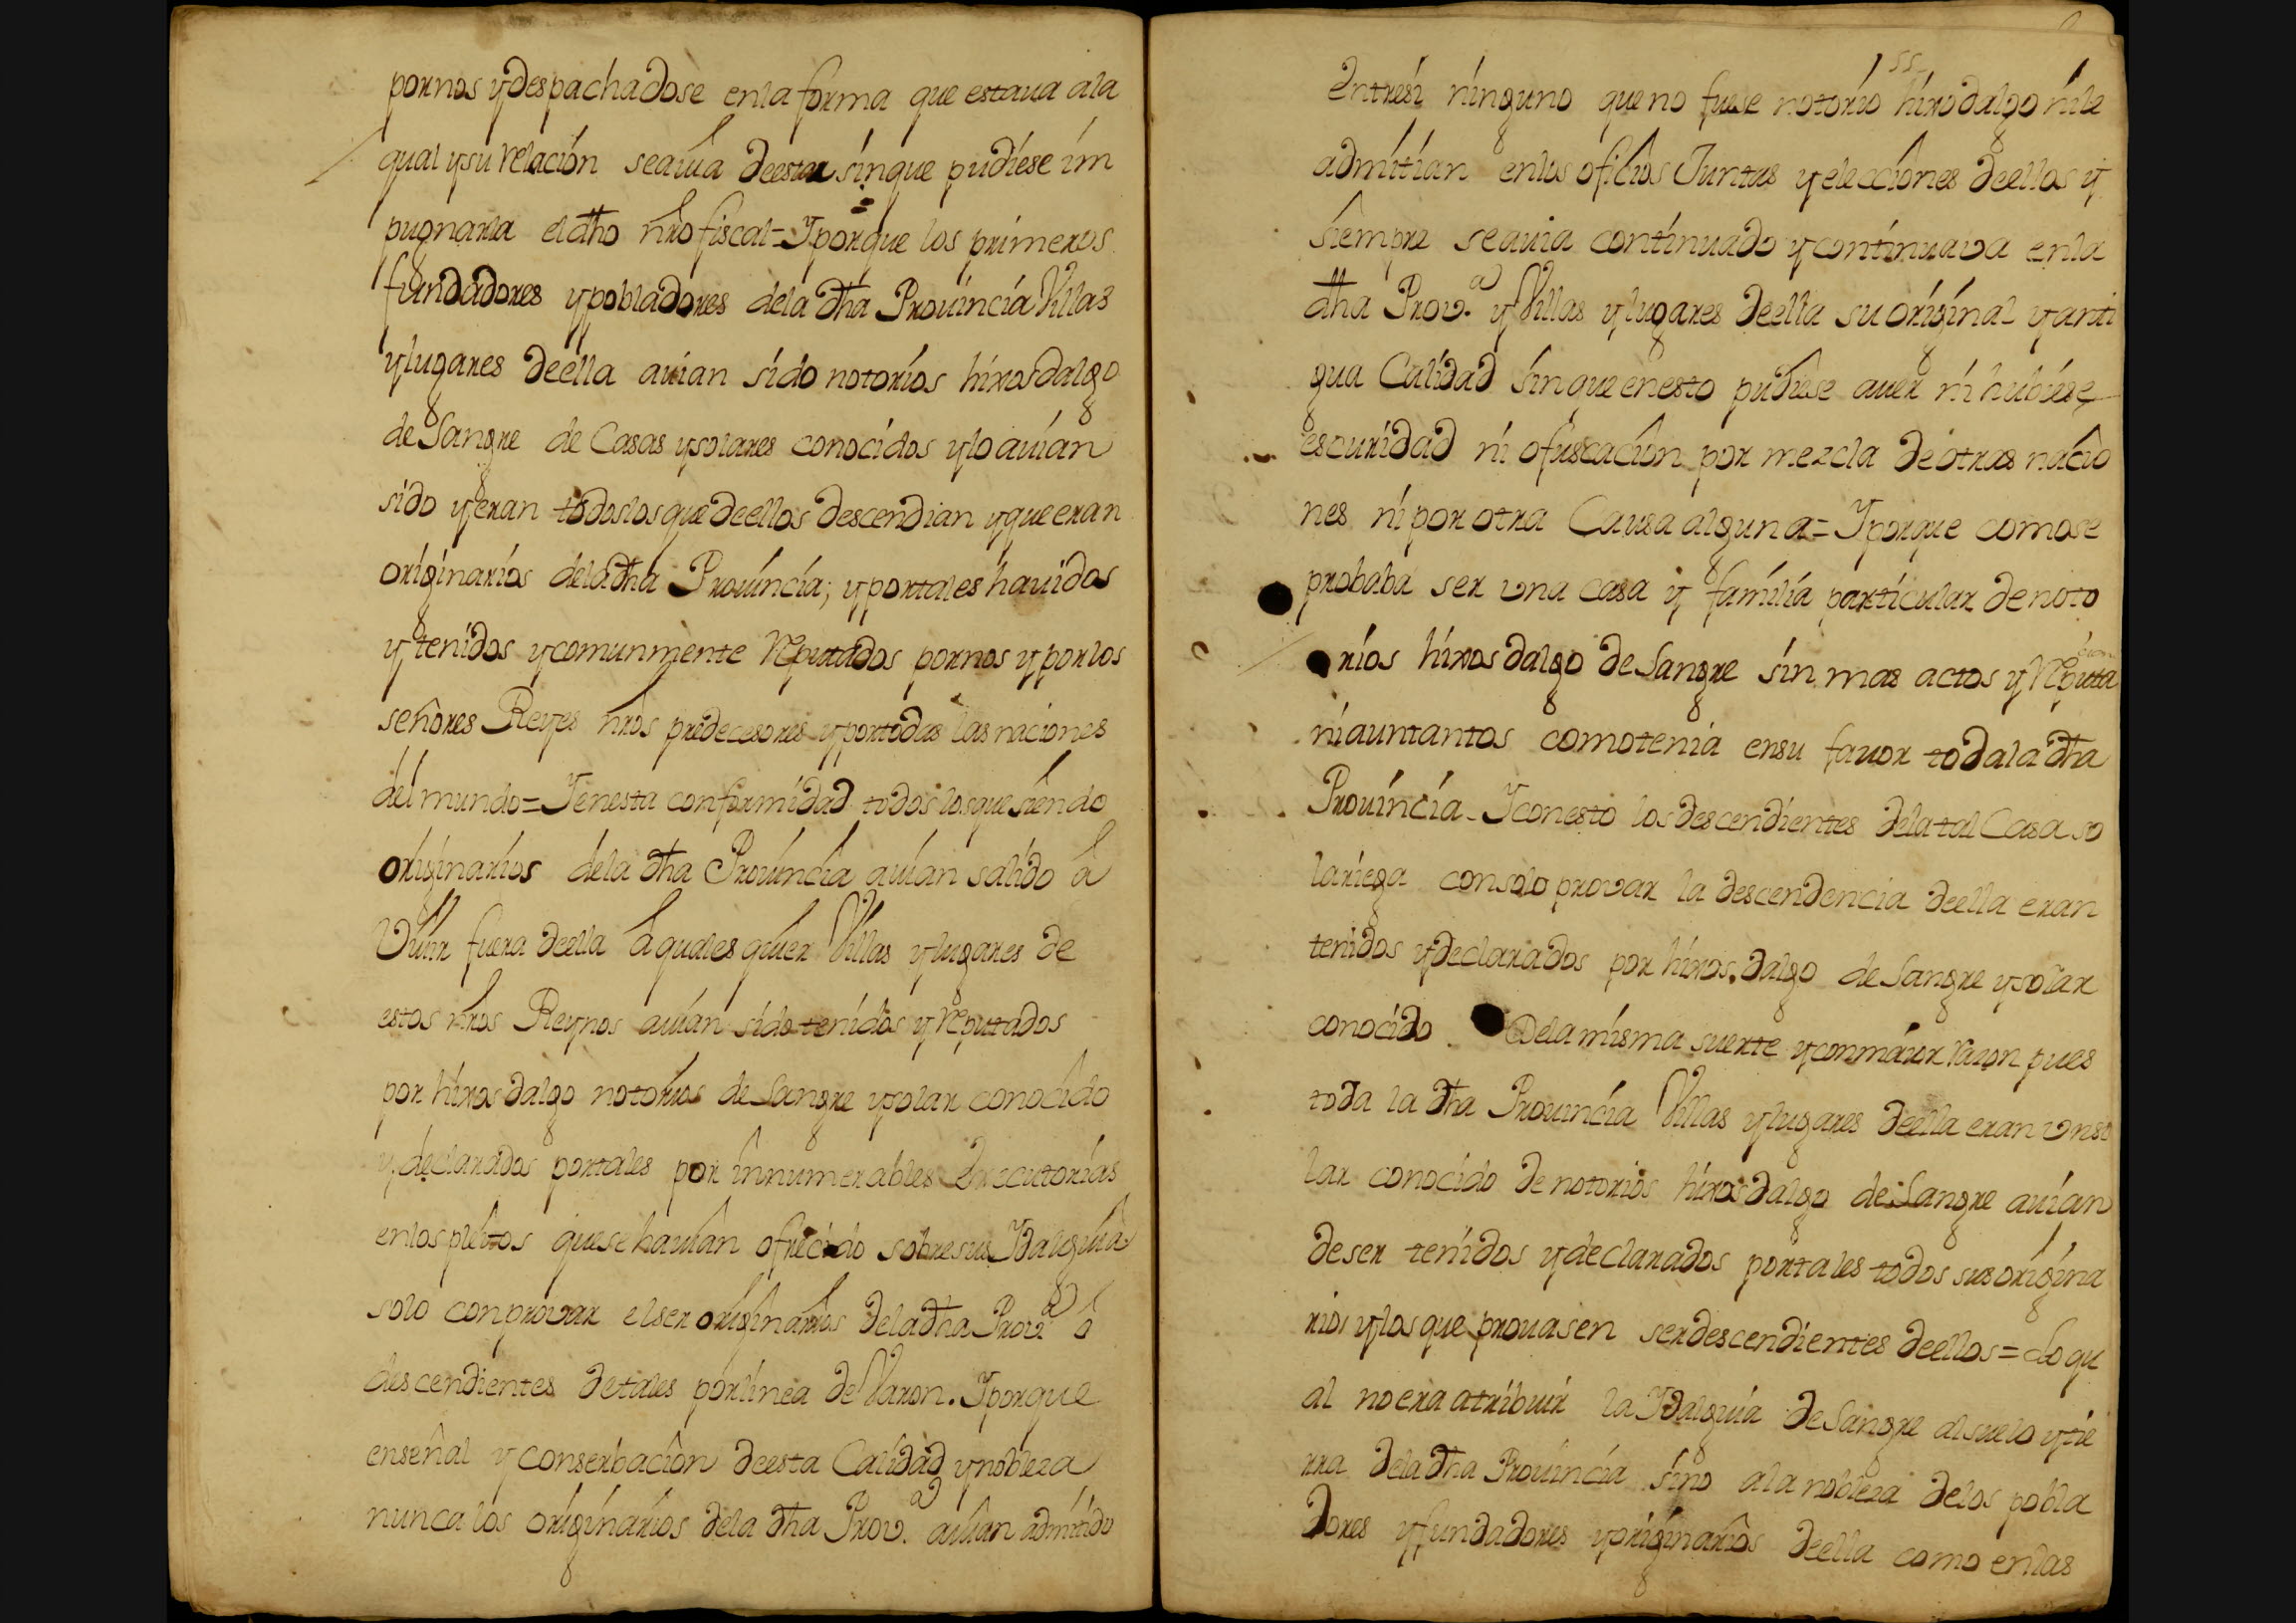 por nos y despachadose en la forma que estaua a la
qual y su relación se auia de estar sin que pudiese im
pugnarla el dho nro fiscal = Y porque los primeros
fundadores y pobladores de la dha Prouincia Villas
y lugares de ella auian sido notorios hixosdalgo
de Sangre de Casas y solares conocidos y lo auian
sido y eran todos los que de ellos descendian y que eran
originarios de la dha Prouincia; y por tales hauidos
y tenidos y comunmente Reputados por nos y por los
señores Reyes nros predecesores y por todas las naciones
del mundo = Y en esta conformidad todos los que siendo
originarios de la dha Prouincia auian salido á
Viuir fuera de ella á quales quier Villas y lugares de
estos nros Reynos auian sido tenidos y Reputados
por hixosdalgo notorios de Sangre y solar conocido
y declarados por tales por innumerables Executorias
en los pleitos que se hauian ofrecido sobre sus Ydalguia
solo con provar el ser originarios de la dha Prov.a ó
descendientes de tales por linea de Varon. Y porque
en señal y conserbacion de esta Calidad y nobleza
nunca los originarios de la dha Prov.a auian admitido
entre si ninguno que no fuese notorio hixodalgo ni le
admitian en los oficios Juntas y elecciones de ellos y
siempre se auia continuado y continuava en la
dha Prov.a y Villas y lugares de ella su original y anti
gua Calidad sin que en esto pudiese auer ni hubiese
escuridad ni ofuscacion por mezcla de otras nacio
nes ni por otra Causa alguna = Y porque como se
probaba ser vna casa y familia particular de noto
rios hixosdalgo de Sangre sin mas actos y Reputacion
ni aun tantos como tenia en su fauor toda la dha
Prouincia - Y con esto los descendientes de la tal Casa so
lariega con solo provar la descendencia de ella eran
tenidos y declarados por hixos.dalgo de Sangre y solar
conocido. De la misma suerte y con maior razon pues
toda la dha Prouincia Villas y lugares de ella eran vn so
lar conocido de notorios hixosdalgo de Sangre auian
de ser tenidos y declarados por tales todos sus origina
rios y los que prouasen ser descendientes de ellos = Lo qu
al no era atribuir la Ydalguia de Sangre al suelo y tie
rra de la dha Prouincia sino a la nobleza de los pobla
dores y fundadores y originarios de ella como en las